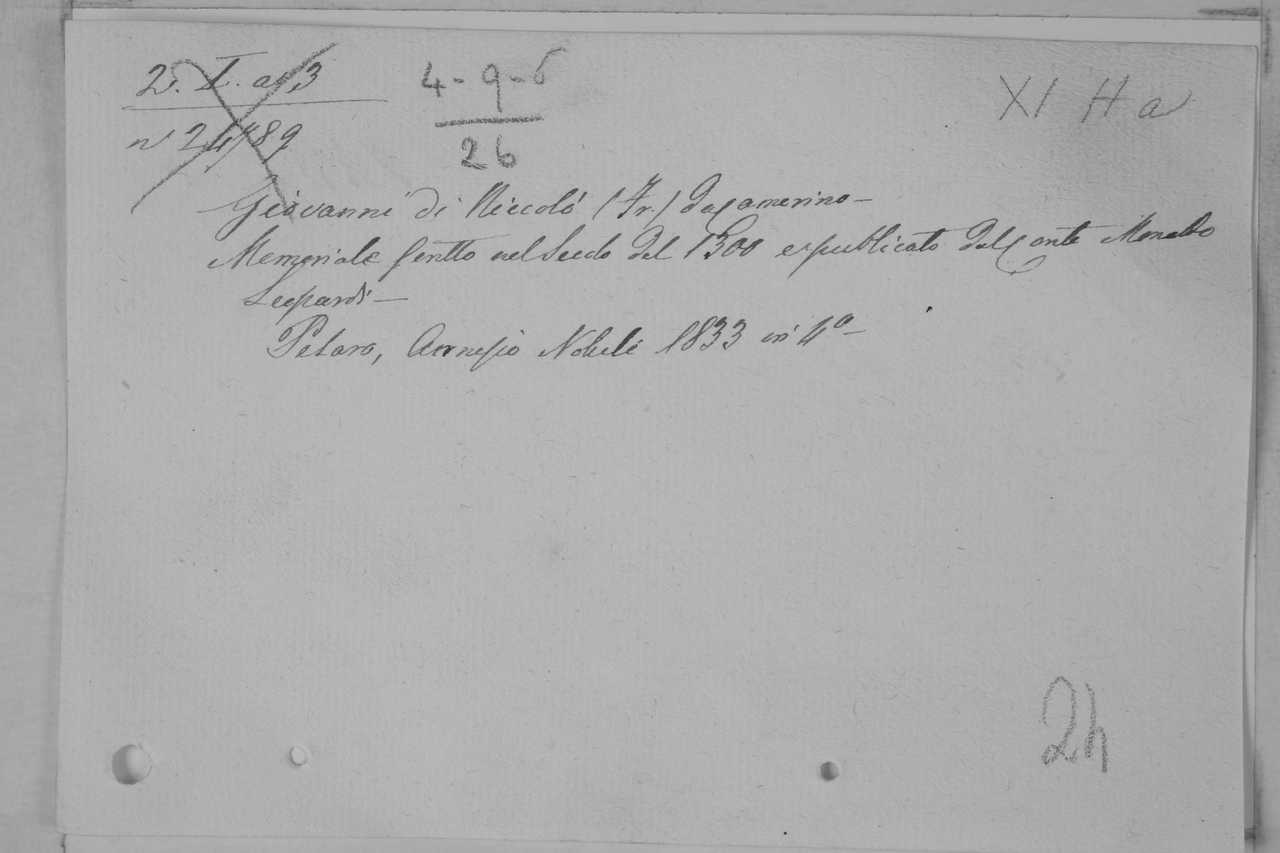 2. I. a. 3
n° 24789
4-9-6
26
XI H a
Giovanni di Niccolò (Fr.) da Camerino —
Memoriale scritto nel Secolo del 1300 e pubblicato dal Conte Monaldo
Leopardi —
Pesaro, Annesio Nobili 1833 in 4° —
24